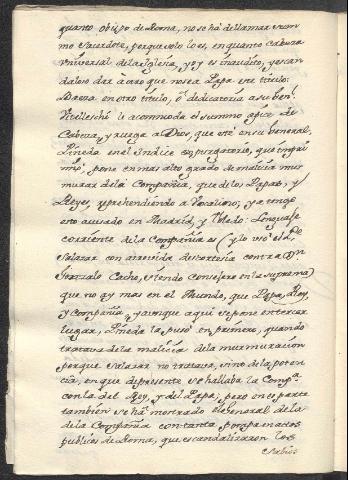 quanto obispo de Roma, no se ha de llamar sum
mo sacerdote, porque solo lo es, en quanto cabeza
universal de la Iglesia, y oy es inaudito, y escan
daloso dar à otro que no sea Papa este titulo:
Bressa en otro titulo, ó dedicatoria a su Genˡ
Vitelleschi le acomoda el summo apice de
Cabeza, y ruega a Dios, que esté en su General.
Pineda en el Indice expurgatorio, que impri
mió, pone en mas alto grado de malicia mur
murar de la Compañia, que de los Papas, y
Reyes, reprehendiendo a
oto acusado en Madrid, y Toledo: Lenguaje
corriente de la Compañia es (y lo vió el Pᵉ
Salazar con atrevida descortesia contra Dⁿ
Gonzalo siendo Consejero en la suprema)
que no ay mas en el Mundo, que Papa, Rey,
y Compañia, y aunque aqui se pone en tercer
lugar, Pineda la puso en primero, quando
tratava de la malicia de la murmuracion
porque Salazar no tratava, sino de la poten
cia, en que de presente se hallaba la Compᵃ
con la del Rey, y del Papa; pero en es parte
tambien se ha mostrado el General de la
de la Compañia con tanta pompa en actos
publicos de Roma, que escandalizaron los
Sabios